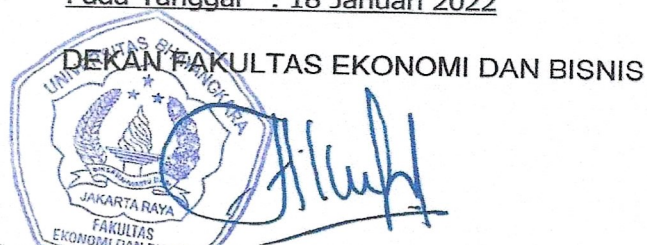 Pada Tanggal : 18 Januari 2022
DEKAN FAKULTAS EKONOMI DAN BISNIS
UNIVERSITAS BHAYANGKARA
JAKARTA RAYA
FAKULTAS
EKONOMI DAN